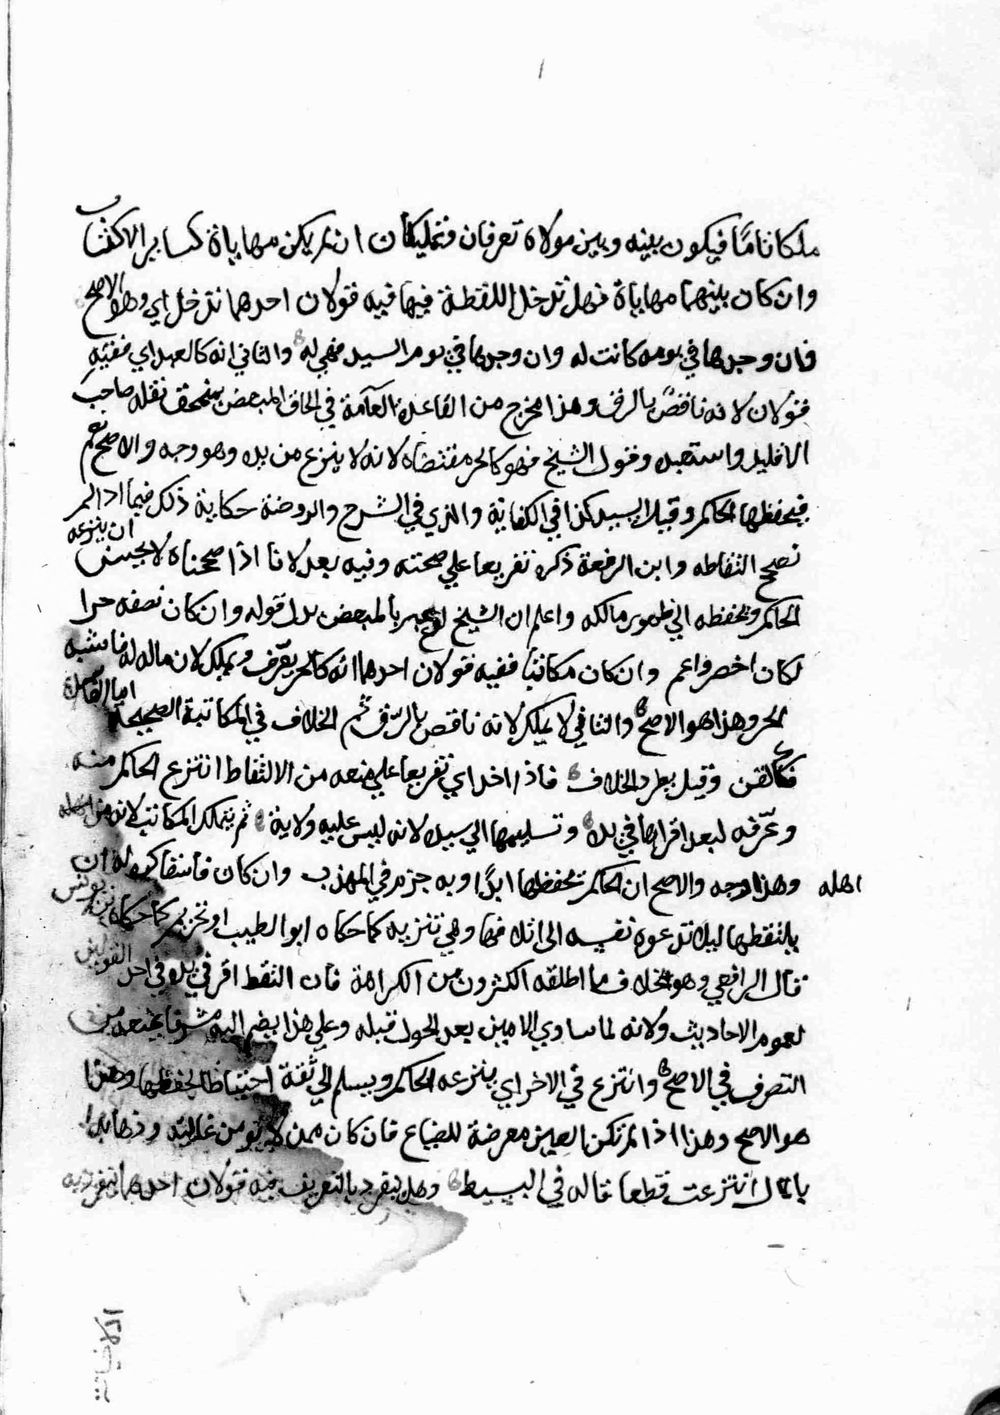 ملكا تاما فيكون بينه وبين مولاه تعرفان وتمليكان ان لم يكن مهاياة كساير الاكتساب
وان كان بينهما مهاياة فهل تدخل اللقطة فيها فيه قولان احدهما تدخل اي وهو الاصح
فان وجدها في يومه كانت له وان وجدها في يوم السيد فهي له والثاني انه كالعبد اي ففيه
قولان لانه ناقص بالرق وهذا مخرج من القاعدة العآمة في الحاق المبعض نقله صاحب
الاقليد واستحب وقول الشيخ فهو كالحر مقتضاه لانه لا ينزع من يده وهو وجه والاصح نعم
فيحفظها الحاكم وقيل السيد كذا في الكفاية والذي في الشرح والروضة حكاية ذلك فيما اذا لم
نصحح التقاطه وابن الرفعة ذكره تفريعا علي صحته وفيه بعد لانا اذا صححناه لا يحسن ان ينزعه
الحاكم ويحفظه الي ظهور مالكه واعلم ان الشيخ لو عبر بالمبعض بدل قوله وان كان نصفه حرا
لكان اخصر واعم وان كان مكاتبا ففيه قولان احدهما انه كالحر يعرّف ويملك لان ماله له فاشبه
الحر وهذا هو الاصح والثاني لا يملك لانه ناقص بالرق ثم الخلاف في المكاتبة الصحيحة اما الفاسدة
فكالقن وقيل بطرد الخلاف فاذا اخذ اي تفريعا علي منعه من الالتقاط انتزع الحاكم منه
وعرّفه لبعد اقرارها في يده وتسليمها الي سيده لانه ليس عليه ولاية ثم يتملك المكاتب لانه من اهله
اهله وهذا وجه والاصح ان الحاكم يحفظها ابدًا وبه جزم في المهذب وان كان فاسقا كره له ان
يلتقطها ليلا تدعوه نفسه الي اتلافها وهي تنزيه كما حكاه ابو الطيب او تحريم كما حكاه بن يونس
قال الرافعي وهو خلاف ما اطلقه الاكثرون من الكراهة فان التقط اقر في يده في احد القولين
لعموم الاحاديث ولانه لما ساوي الامين بعد الحول قبله وعلي هذا يضم اليه مشرفا يمنعه من
التصرف في الاصح وانتزع في الاخر اي ينزعه الحاكم ويسلم الي ثقة احتياطا لحفظها وهذا
هو الاصح وهذا اذا لم تكن العين معرضة للضياع فان كان ممن لا يومن غايلته وذهابه
بالمال انتزعت قطعا قاله في البسيط وهل ينفرد بالتعريف فيه قولان احدهما ينفرد به